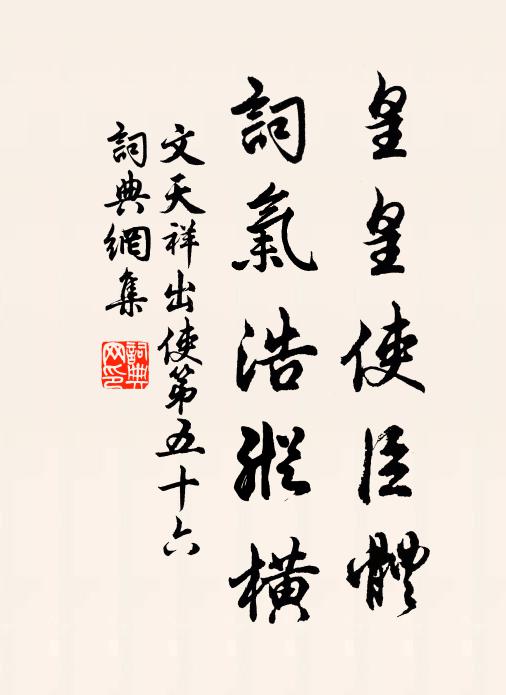 皇皇使臣體
詞氣浩縱橫
文天祥出使第五十六
詞典網集
詞典網印